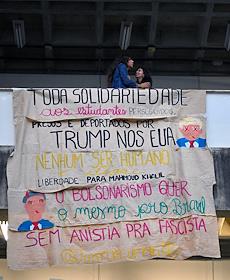 TODA SOLIDARIEDADE
aos estudantes PERSEGUIDOS,
PRESOS E DEPORTADOS POR
TRUMP NOS EUA
NENHUM SER HUMANO
LIBERDADE PARA MAHMOUD KHALIL
O BOLSONARISMO QUER
o mesmo pro Brasil
SEM ANISTIA PRA FASCISTA